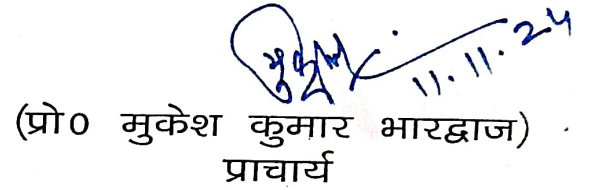 मुकेश
11.11.24
(प्रो0 मुकेश कुमार भारद्वाज)
प्राचार्य